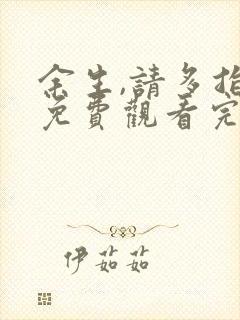 余生,請多指
免費觀看完
伊茹茹